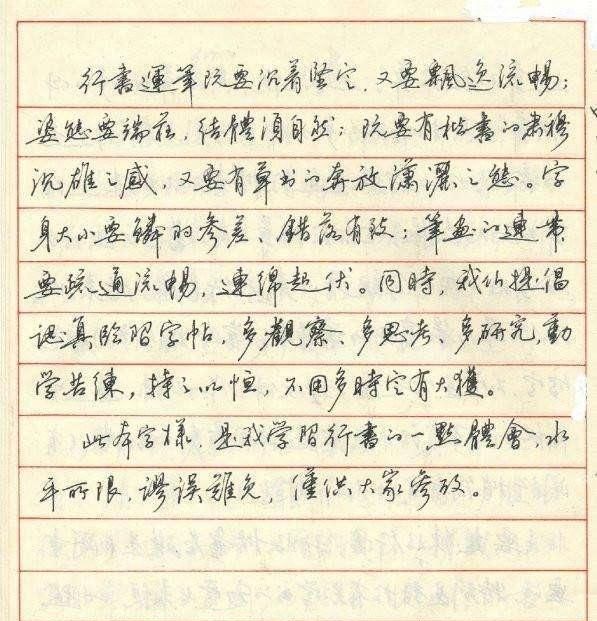 行書運筆既要沉着堅定，又要飄逸流暢；
姿態要端莊，結體須自然；既要有楷書的肅穆
沉雄之感，又要有草书的奔放瀟灑之態。字
身大小要鱗羽參差、錯落有致；筆画的連帶，
要疏通流暢，連綿起伏。同時，我们提倡
認真臨習字帖，多觀察、多思考、多研究，勤
学苦練，持之以恒，不用多時定有大獲。
此本字樣，是我学習行書的一點體會，水
平所限，謬誤難免，僅供大家參攷。